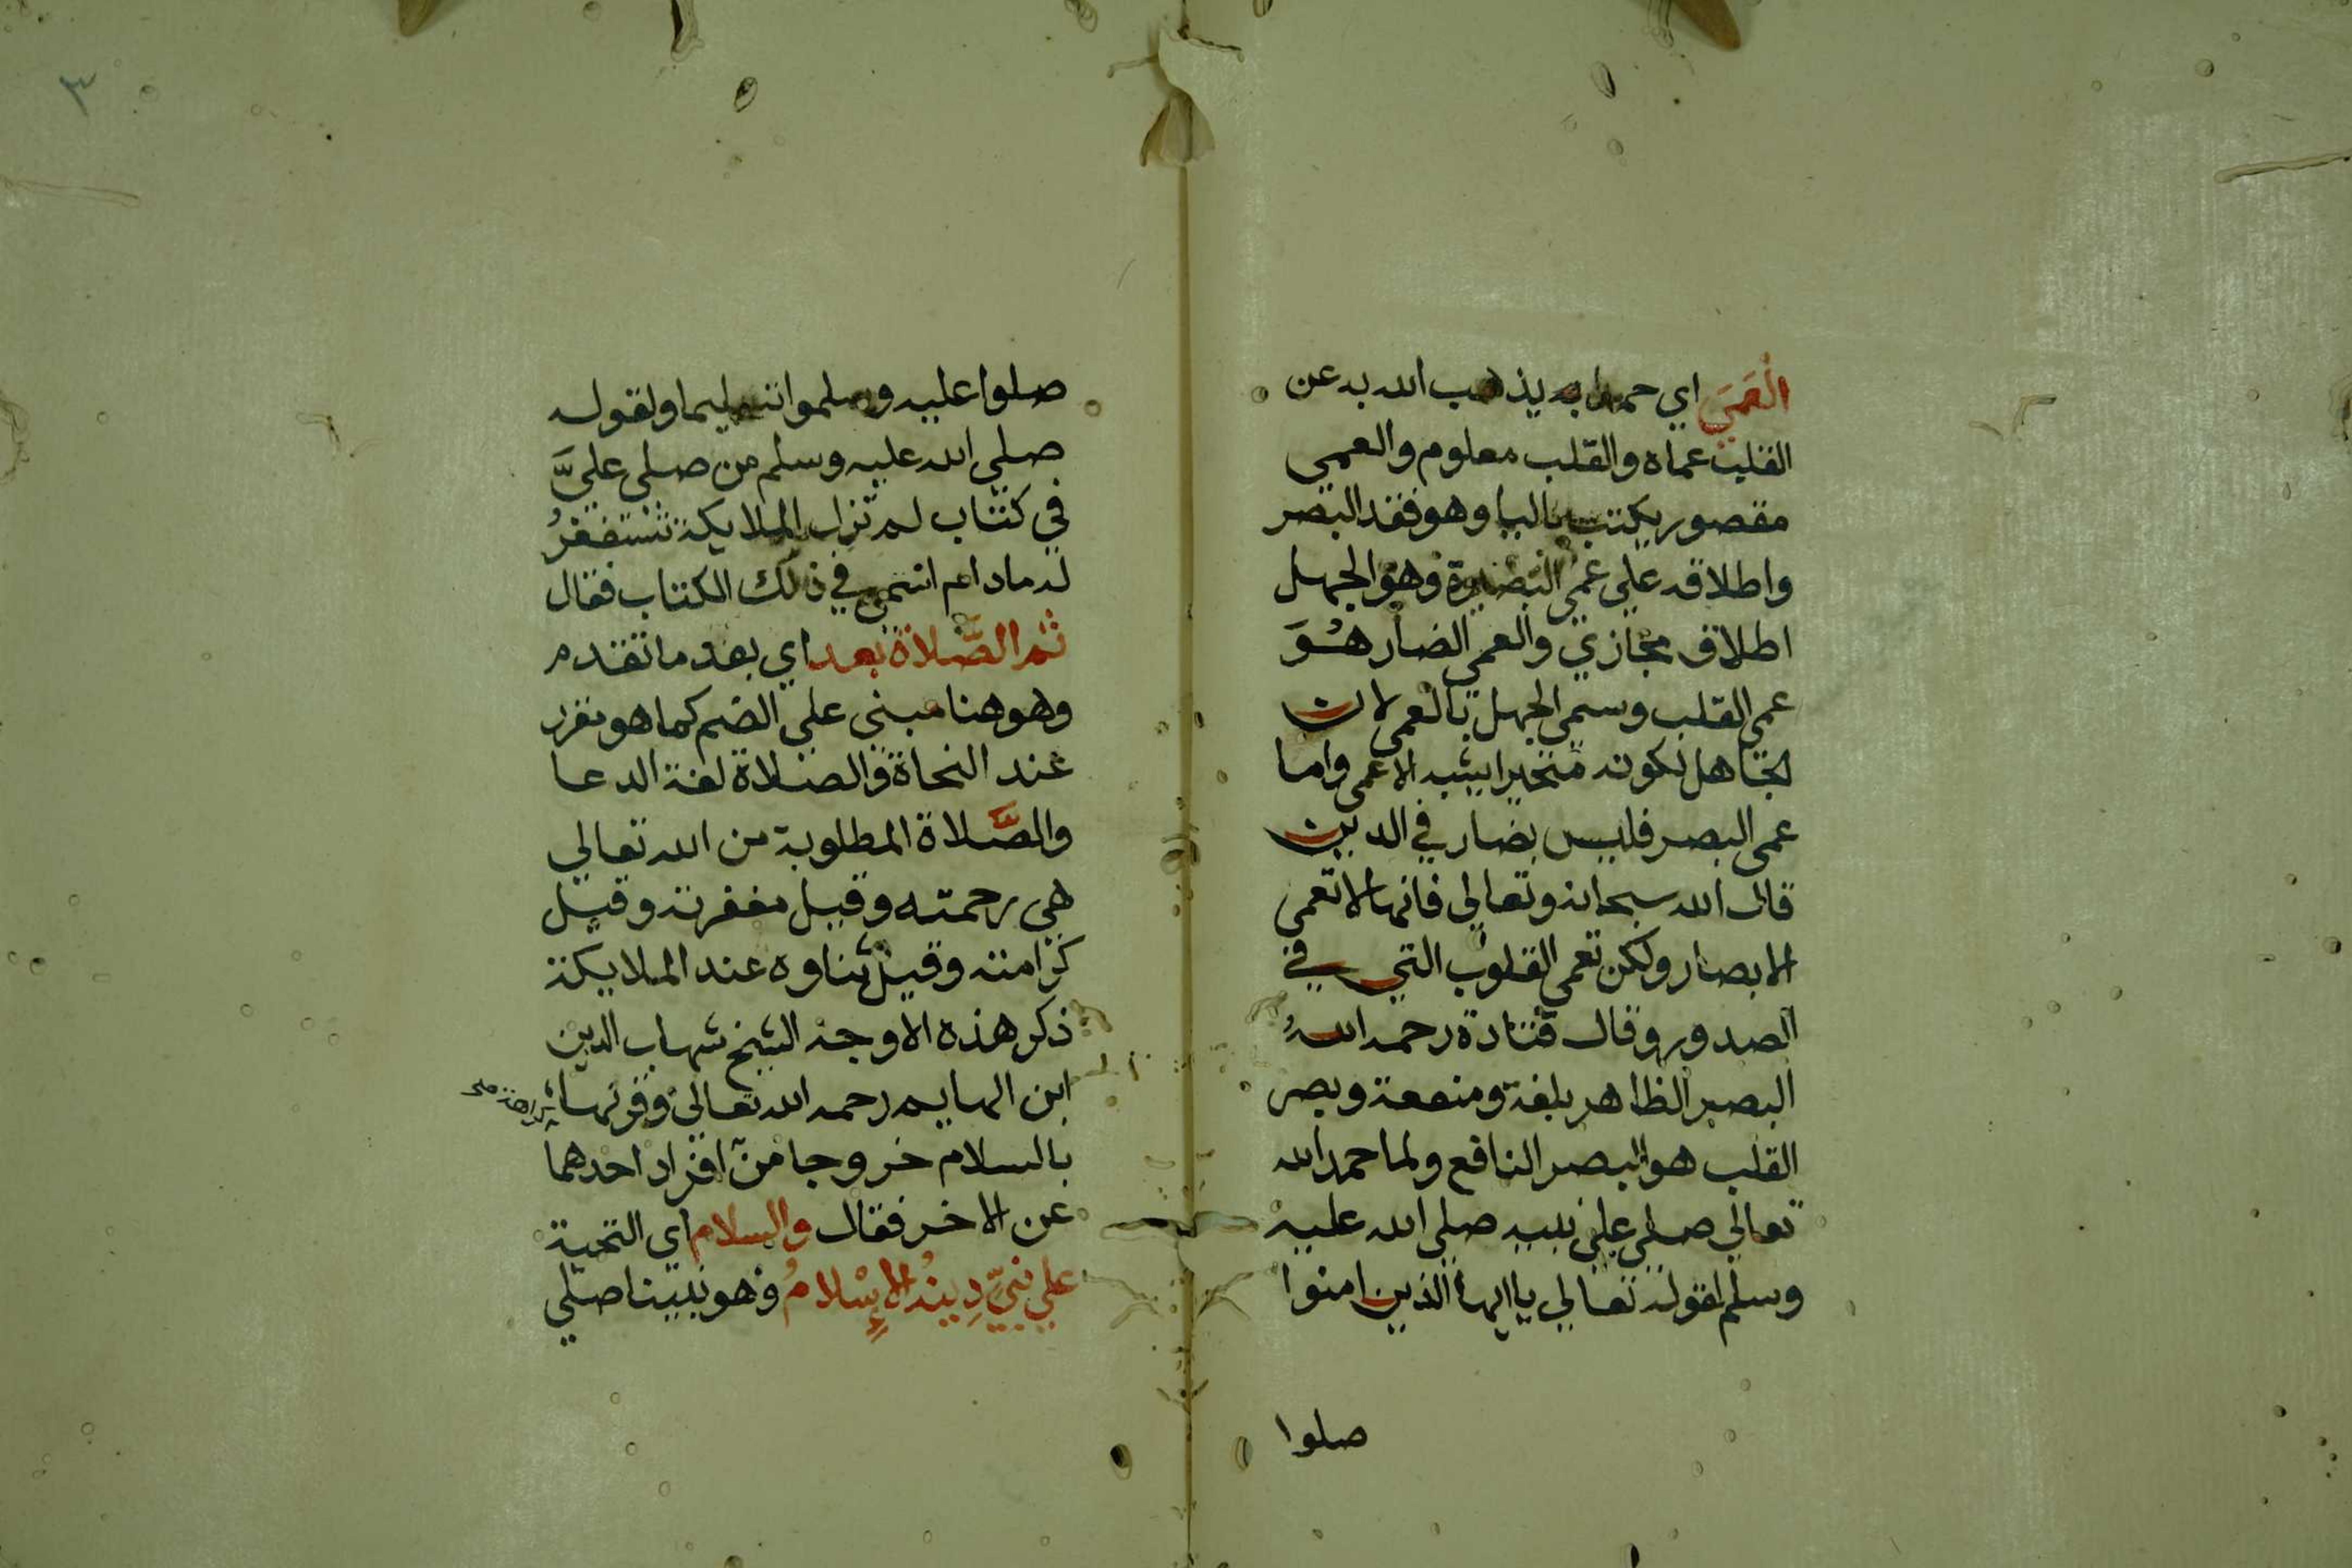 العَمَى اي حمدا به يذهب الله به عن
القلب عماه والقلب معلوم والعمي
مقصور يكتب باليا وهو فقد البصر
واطلاقه علي عمي البصيرة وهو الجهل
اطلاق مجازي والعمي الضار هُوَ
عمي القلب وسمي الجهل بالعمي لان
الجاهل لكونه متحيرا يشبه الاعمى واما
عمى البصر فليس بضار في الدين
قال الله سبحانه وتعالي فانها لا تعمى
الابصار ولكن تعمى القلوب التي في
الصدور وقال قتادة رحمه اللهُ
البصر الظاهر بلغة ومنفعة وبصر
القلب هو البصر النافع ولما حمد الله
تعالي صلي علي نبيه صلي الله عليه
وسلم لقوله تعالي ياايها الذين امنوا
صلوا
٣
صلوا عليه وسلموا تسليما ولقوله
صلي الله عليه وسلم من صلي عليَّ
في كتاب لم تزل الملايكة تستغفرُ
له مادام اسمي في ذلك الكتاب فقال
ثم الصَّلاة بعد اي بعد ما تقدم
وهو هنا مبني علي الضم كما هو مقرر
عند النحاة والصلاة لغة الدعا
والصَّلاة المطلوبة من الله تعالي
هي رحمته وقيل مغفرته وقيل
كرامته وقيل ثناوه عند الملايكة
ذكر هذه الاوجه الشيخ شهاب الدين
ابن الهايم رحمه الله تعالي وقرنها
بالسلام خروجا من افراد احدهما
عن الاخر فقال والسلام اي التحية
علي نبيٍّ دِينُه الإِسْلامُ وهو نبينا صلي